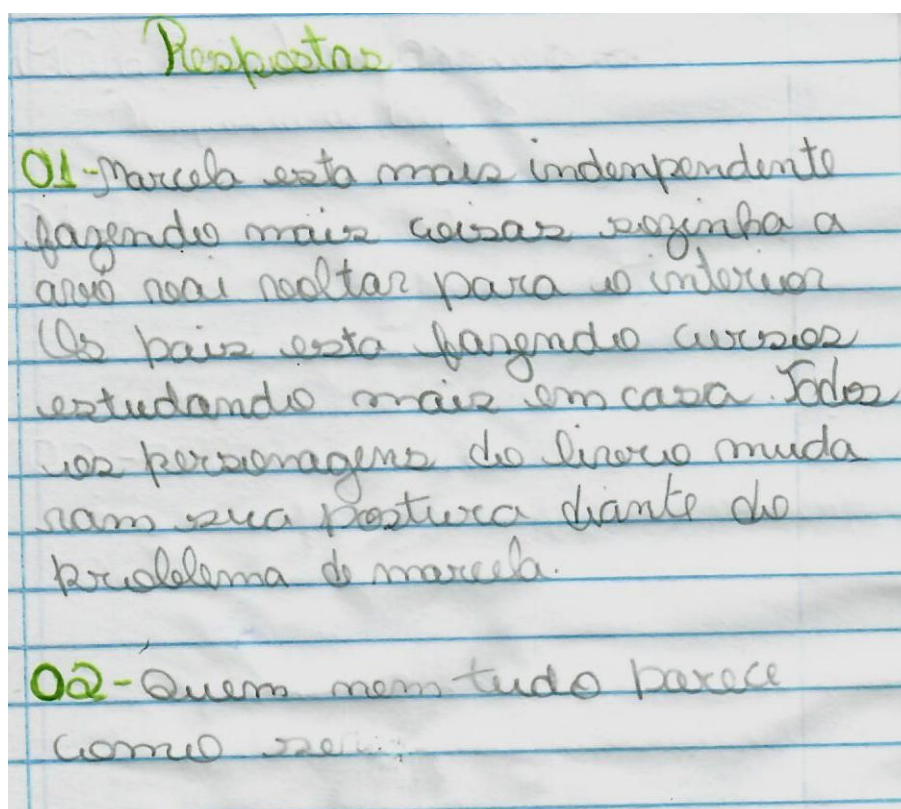 Respostas
01-Marcela esta mais indenpendente
fazendo mais coisas sozinha a
avó vai voltar para o interior
Os pais esta fangendo cursos
estudando mais em casa. Todos
os personagens do livro muda
ram sua postura diante do
problema de marcela.
02-Quem nem tudo parece
como se...